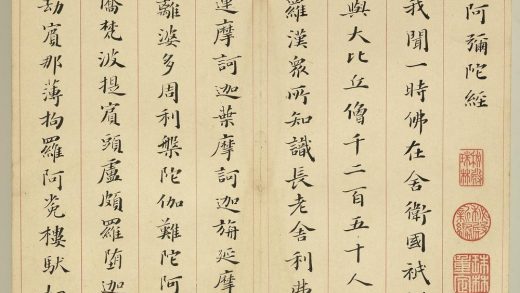 阿彌陀經
我聞一時佛在舍衛國祇
與大比丘僧千二百五十人
羅漢衆所知識長老舍利弗
連摩訶迦葉摩訶迦旃延摩
離婆多周利槃陀伽難陀阿
憍梵波提賓頭盧頗羅墮迦
劫賓那薄拘羅阿㝹樓馱如